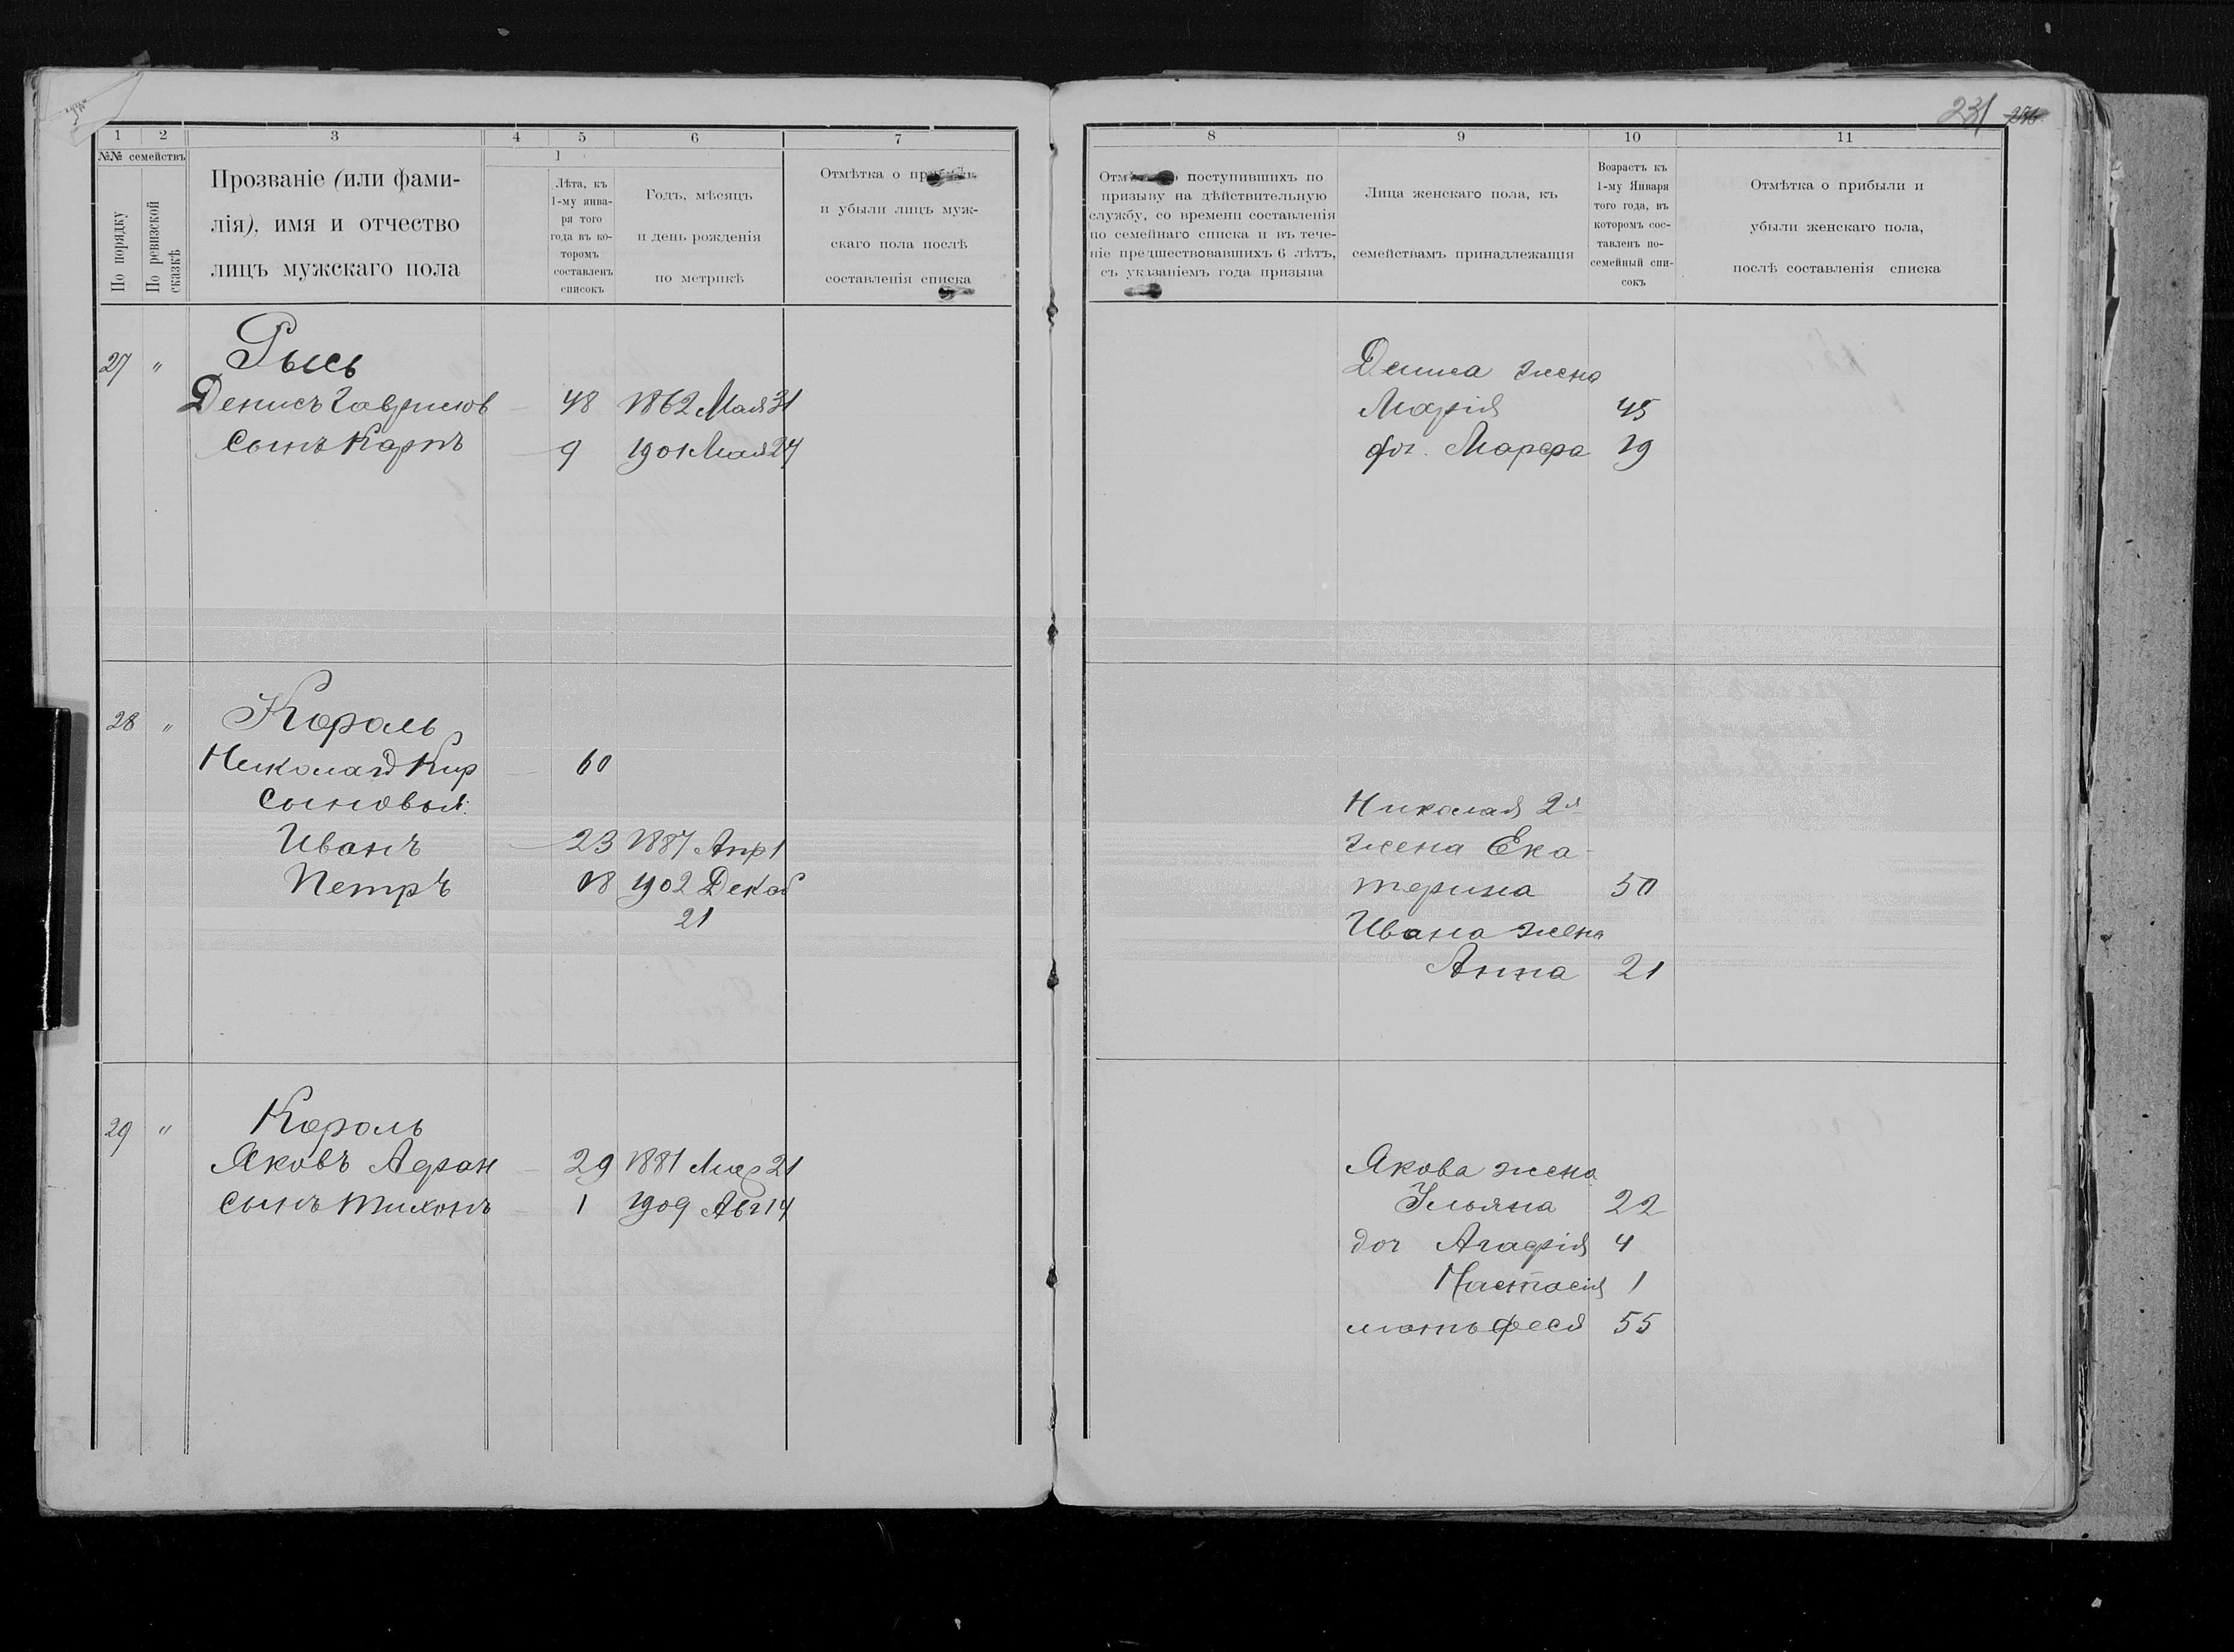 231 276
1 2 3 4 5 6 7
№№ семействъ
По порядку
По ревизской сказкѣ
Прозваніе (или фами-
лія), имя и отчество
лицъ мужскаго пола
1
Лѣта, къ
1-му янва-
ря того
года въ ко-
торомъ
составленъ
списокъ
Годъ, мѣсяцъ
и день рожденія
по метрикѣ
Отмѣтка о прибыли
и убыли лицъ муж-
скаго пола послѣ
составленія списка
27 " Рысь
Денисъ Гаврилов 48 1862 Мая 31
Сынъ Карпъ 9 1901 Мая 24
28 " Король
Николай Кир 60
Сыновья:
Иванъ 23 1887 Апр 1
Петръ 8 1902 Декаб
21
29 " Король
Яковъ Адрон 29 1881 Мар 21
Сынъ Тихонъ 1 1909 Авг 14
8 9 10 11
Отмѣтка о поступившихъ по
призыву на дѣйствительную
службу, со времени составленія
по семейнаго списка и въ тече-
ніе предшествовавшихъ 6 лѣтъ,
съ указаніемъ года призыва
Лица женскаго пола, къ
семействамъ принадлежащія
Возрастъ къ
1-му Января
того года, въ
которомъ сос-
тавленъ по-
семейный спи-
сокъ
Отмѣтка о прибыли и
убыли женскаго пола,
послѣ составленія списка
Дениса жена
Марія 45
доч. Марфа 19
Николая 2я
жена Ека-
терина 50
Ивана жена
Анна 21
Якова жена
Ульяна 22
доч Агафія 4
Настасія 1
мать Феся 55